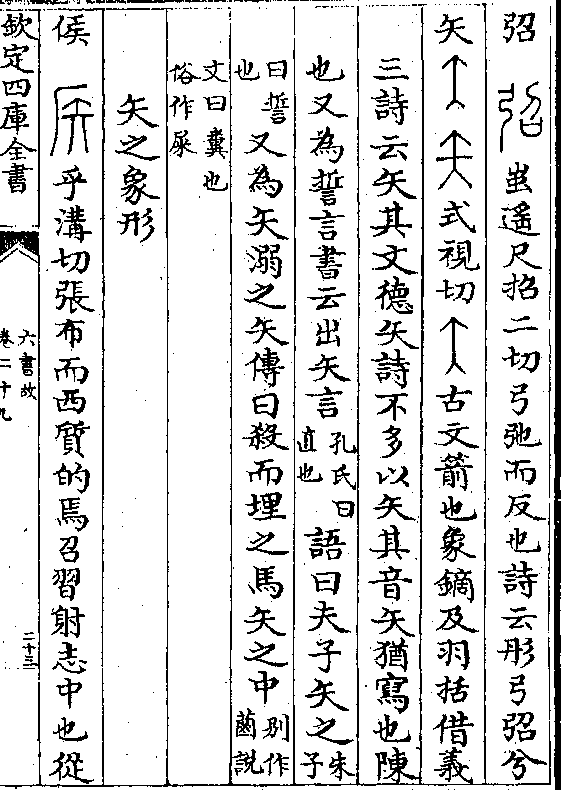 弨 蚩遙尺招二切弓弛而反也詩云彤弓弨兮
矢 式視切 古文箭也象鏑及羽括借義
三詩云矢其文德矢詩不多以矢其音矢猶寫也陳
也又為誓言書云出矢言孔氏曰直也語曰夫子矢之朱子
曰誓也又為矢溺之矢傳曰殺而埋之馬矢之中別作說
文曰糞也俗作屎
矢之象形
侯 乎溝切張布而西質的焉召習射志中也從
欽定四庫全書
六書故
卷二十九
二十三